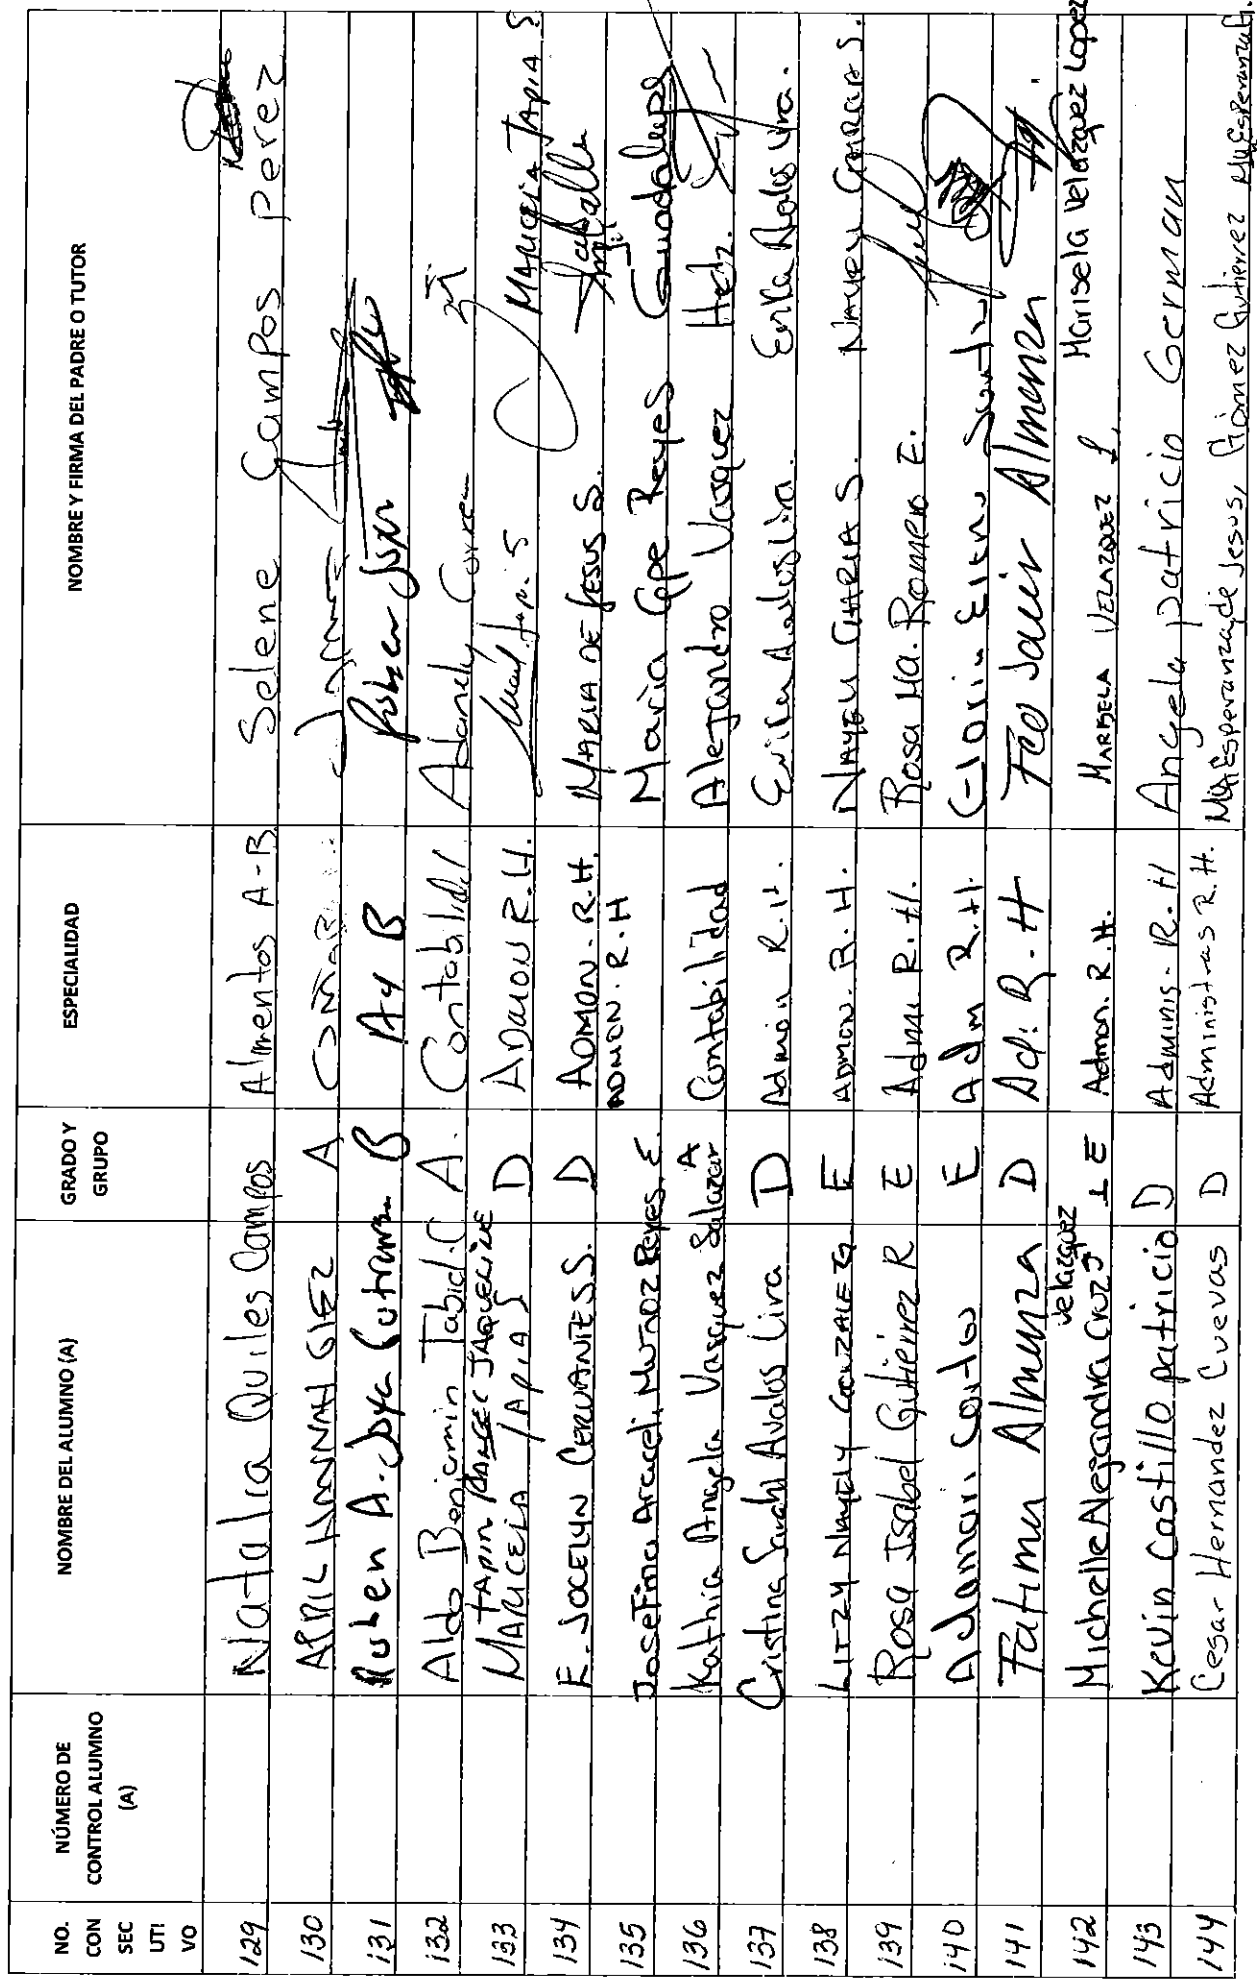 NO. CON SEC UTI VO
NÚMERO DE CONTROL ALUMNO (A)
NOMBRE DEL ALUMNO (A)
GRADO Y GRUPO
ESPECIALIDAD
NOMBRE Y FIRMA DEL PADRE O TUTOR
129 Natalia Quiles Campos Alimentos A-B Selene Campos perez
130 APRIL HANNAH GLEZ A
131 Ruben A. Joya Gutierrez B A y B Ruben Joya
132 Aldo Benjamin Tabid.C A. Contabilidad Adanely Correa
133 TAPIA RANGEL JAQUELINE
MARICELA TAPIA S D ADMON R.H. MARICELA TAPIA S
134 E. JOCELYN CERVANTES S. D ADMON. R.H. MARIA DE JESUS S.
135 Josefina Araceli Muñoz Reyes. E ADMON. R.H Maria Gpe Reyes Guadalupe
136 Kathia Angela Vasquez Salazar A Contabilidad Alejandro Vasquez Hdz.
137 Cristina Sarahi Avalos Lira D Admion R.H. Erica Avalos Lira. Erika Avalos Lira.
138 LITZY NAYELY GONZALEZ G E ADMON. R.H. NAYELI GARCIA S. NAYELI GARCIA S.
139 Rosa Isabel Gutiérrez R E Admi R.H. Rosa Ma. Romero E.
140 Adamari E Adm R.H. Gloria Elena
141 Fatima Almanza D Ad. R.H Fco Javier Almanza
142 Michelle Alejandra Cruz Velazquez 1 E Admon. R.H. MARBELA VELAZQUEZ L. Marisela Velazquez Lopez
143 Kevin Castillo patricio D Adminis. R.H Angela patricio German
144 Cesar Hernandez Cuevas D Administras R.H. Ma Esperanza de Jesus, Gómez Gutierrez Ma Esperanza G.